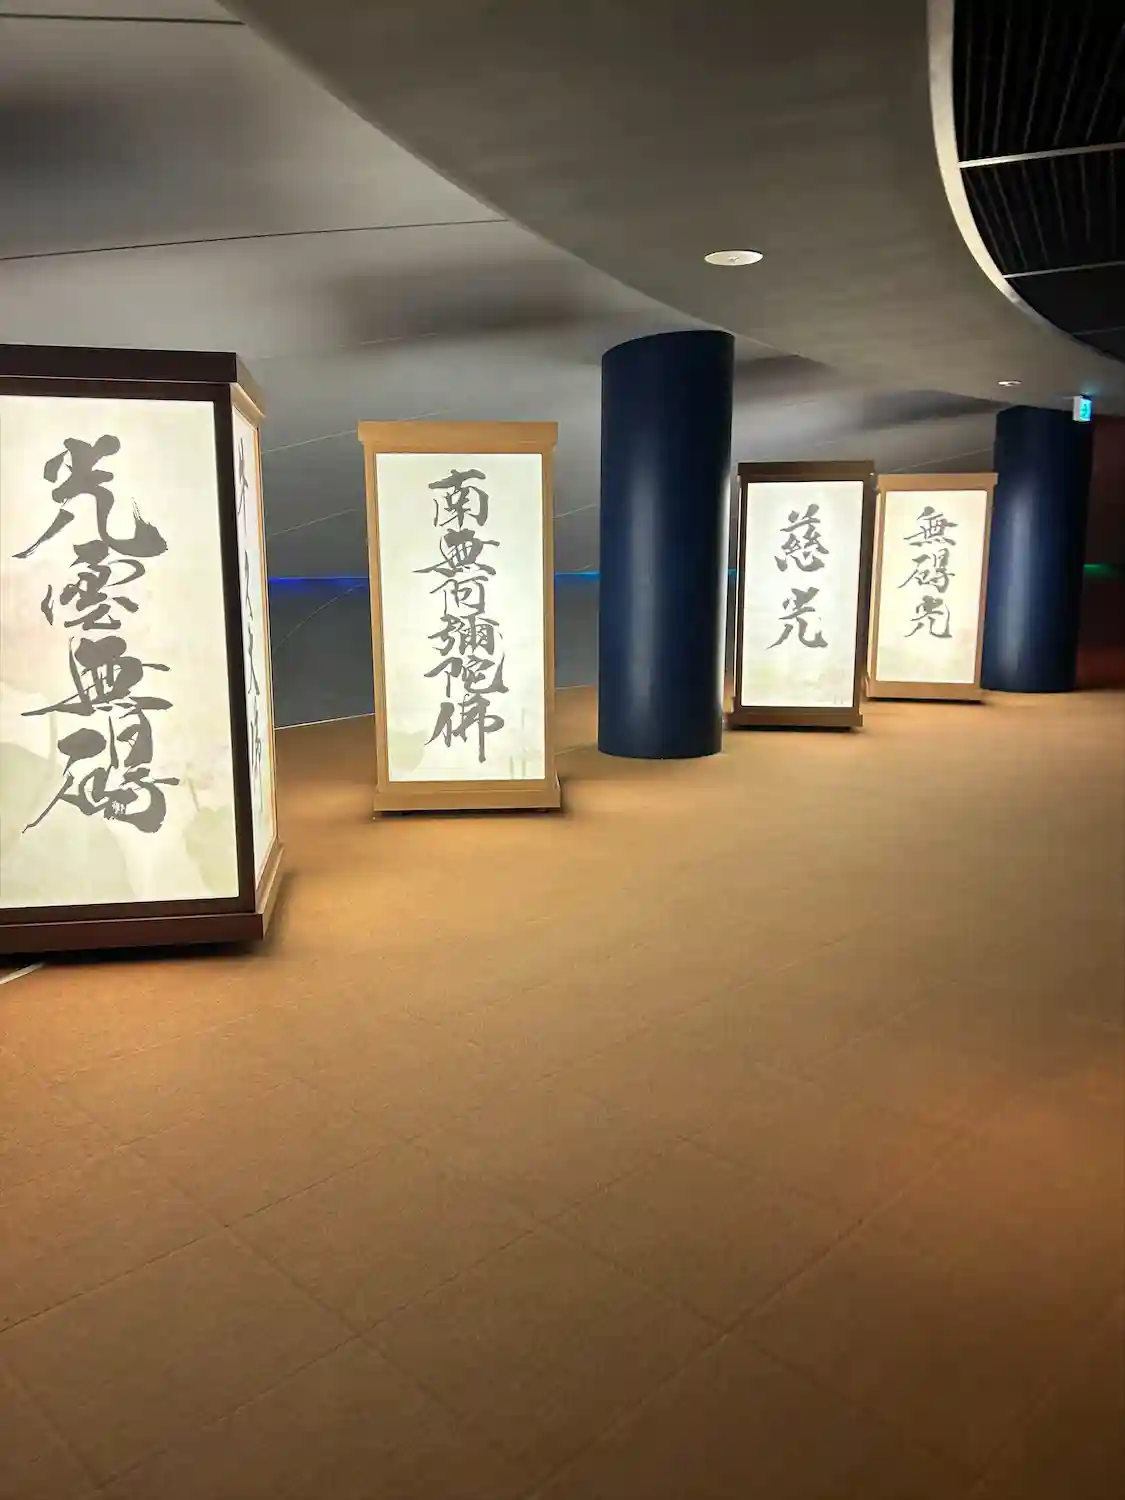 光雲無碍
南無阿彌陀佛
慈光
無碍光